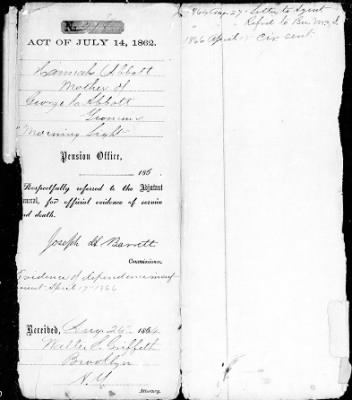 No.
ACT OF JULY 14, 1862.
Hannah Abbott
Mother of
George W. Abbott
"Morning Light"
Pension Office,
186
Respectfully referred to the Adjutant
General, for official evidence of service
and death.
Joseph H Barrett
Commissioner.
Evidence of dependence insuf
April 17 1866
Received, Aug 26 1864
Griffeth
Brooklyn
N.Y.
Attorney.
1864 Aug. 27 - Letter to Agent
" " Refed to Bu.
1866 April 17 Cir sent